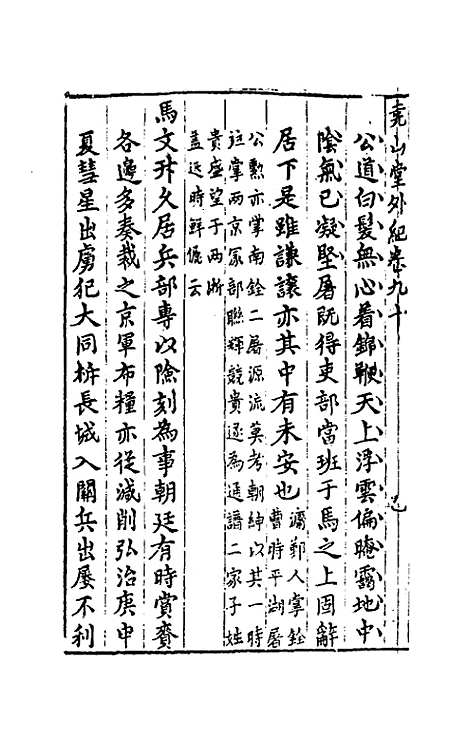 堯山堂外紀卷九十
公道白髮無心着錦鞭天上浮雲偏晻靄地中
陰氣已凝堅屠既得吏部當班于馬之上固辭
居下是雖謙讓亦其中有未安也
滽鄞人掌銓
曹時平湖屠
公勳亦掌南銓二屠源流莫考朝紳以其一時
並掌兩京冢部聯輝競貴遂為通譜二家子姓
貴盛望于兩浙
盖近時鮮儷云
馬文升久居兵部專以陰刻為事朝廷有時賞賚
各邊多奏裁之京軍布糧亦從減削弘治庚申
夏彗星出虜犯大同拆長城入關兵出屢不利